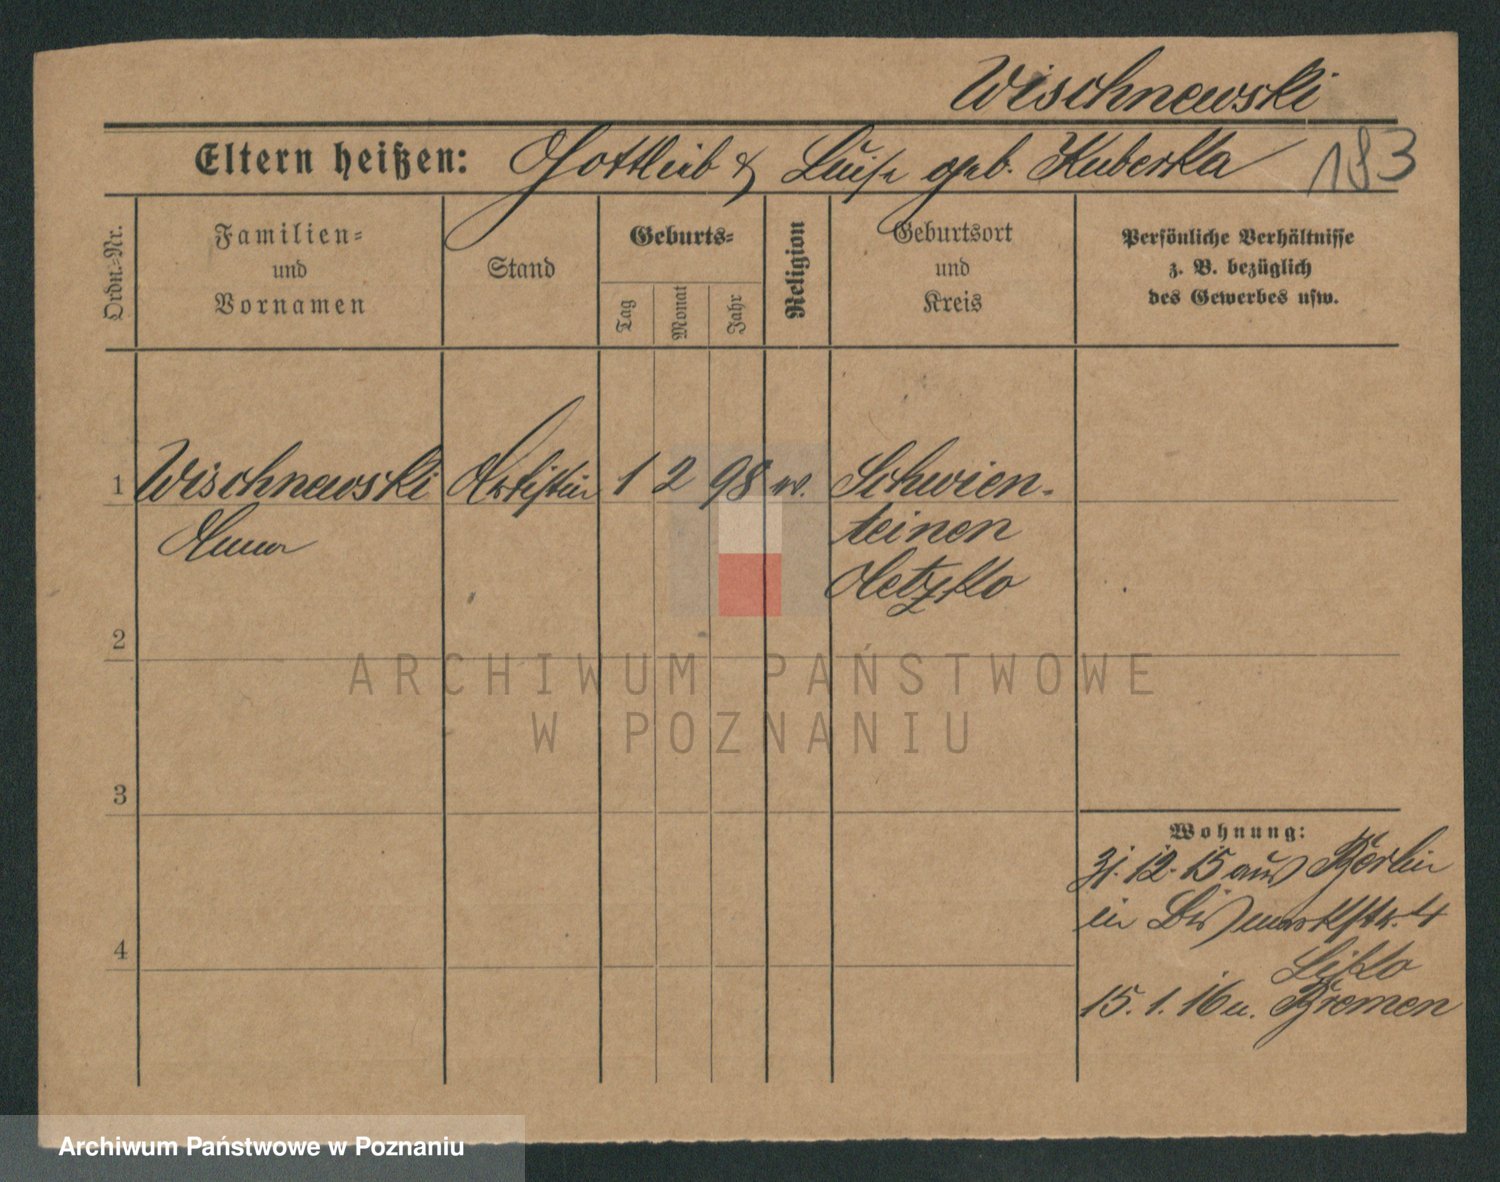 Wischnewski
Eltern heißen: Gottlieb & Luise geb. Kuberka
183
Ordn.-Nr.
Familien-
und
Vornamen
Stand
Geburts-
Tag
Monat
Jahr
Religion
Geburtsort
und
Kreis
Persönliche Verhältnisse
z. B. bezüglich
des Gewerbes usw.
1 Wischnewski Artistin 1 2 98 w. Schwien-
Anna teinen
Oletzko
2
ARCHIWUM PAŃSTWOWE
W POZNANIU
3
Wohnung:
31.12.15 aus Berlin
in Bismarkstr. 4
4
15.1.16 n. Bremen
Archiwum Państwowe w Poznaniu